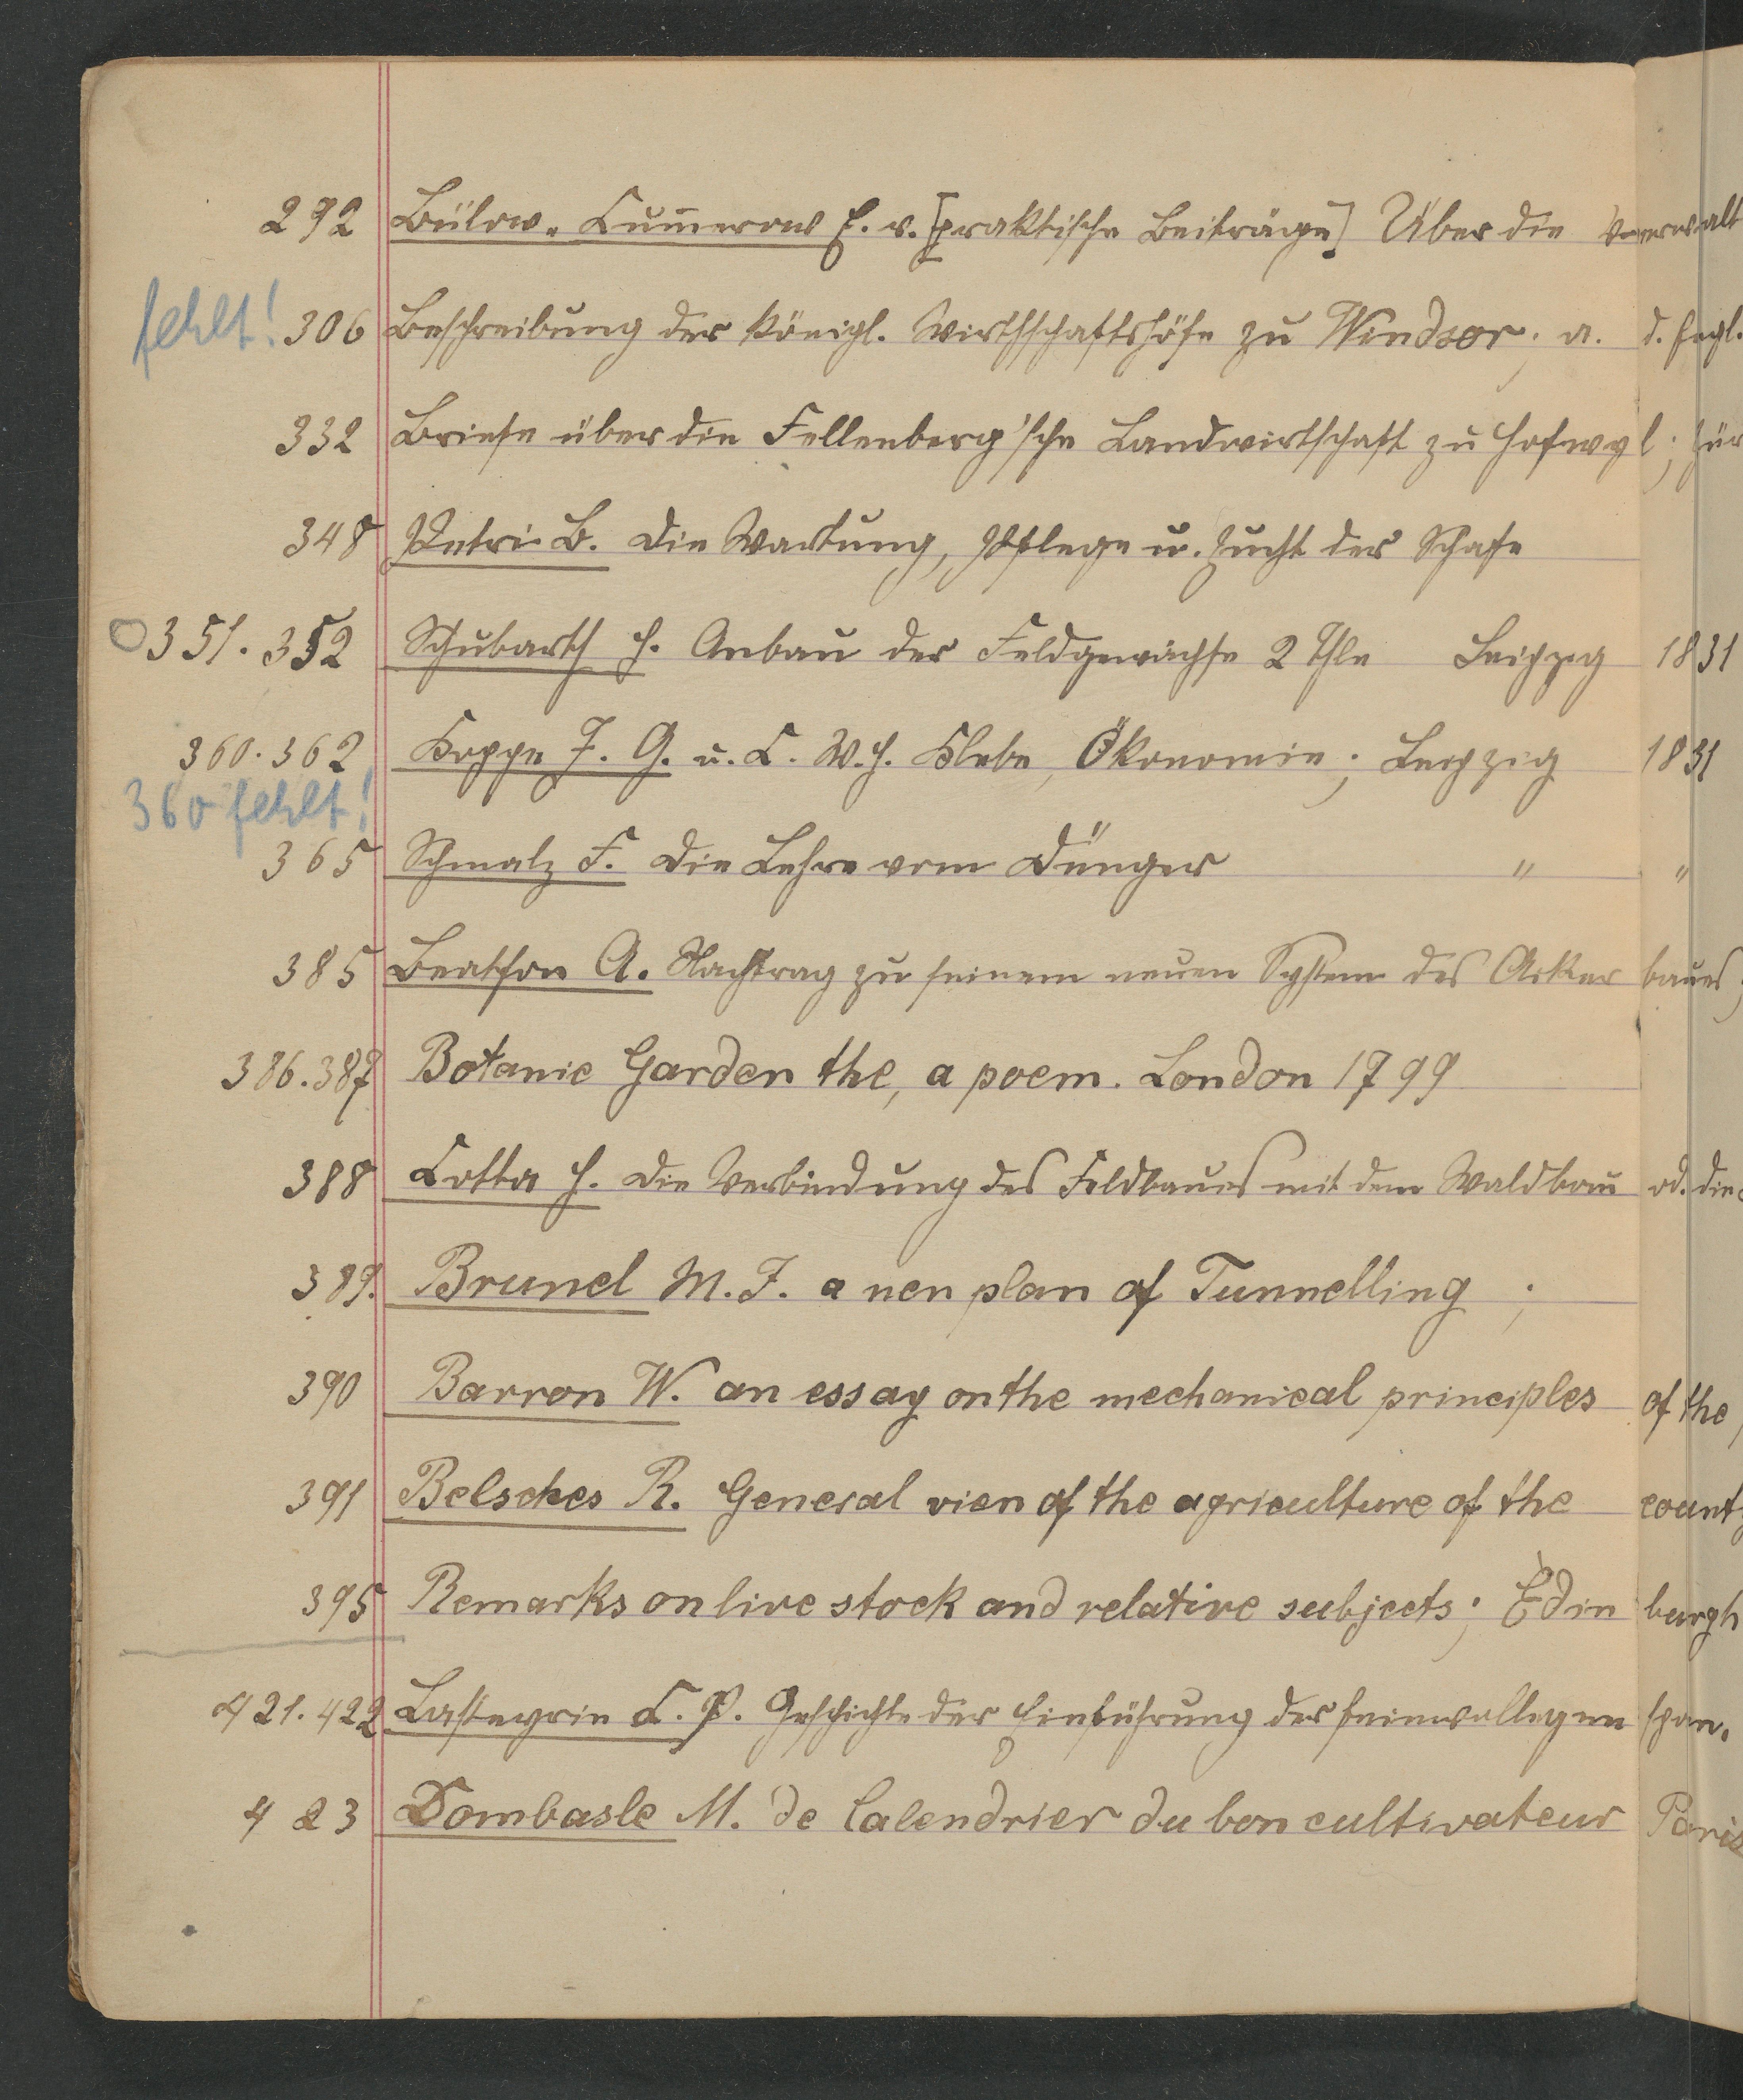 292 Bülow-Cum̅erow E. v. [praktische Beiträge] Über die Verwalt
fehlt! 306 Beschreibung der königl. Wirthschaftshöfe zu Windsor; a. d. Engl.
332 Briefe über die Fellenberg'sche Landwirtschaft zu Hofwyl; Zür
348 Petri B. Die Wartung, Pflege u. Zucht der Schafe
351. 352 Schubarth H. Anbau der Feldgewächse 2 Thle Leipzig 1831
360. 362 Koppe J. G. u. C. W. H. Klebe, Ökonomie; Leipzig 1831
360 fehlt!
365 Schmalz F. Die Lehre vom Dünger " "
385 Beatson A. Nachtrag zu seinem neuen System des Ackerbaues;
386. 387 Botanic Garden the, a poem. London 1799
388 Cotta H. Die Verbindung des Feldbaues mit dem Waldbau od. die
389. Brunel M. J. a nen plan of Tunnelling ;
390 Barron W. an essay on the mechanical principles of the
391 Belsches R. General vien of the agriculture of the county
395 Remarks on live stock and relative subjects; Edinburgh
421. 422 Lasteyrie C. P. Geschichte der Einführung der feinwolligen span.
423 Dombasle M. de Calendrier du bon cultivateur Paris